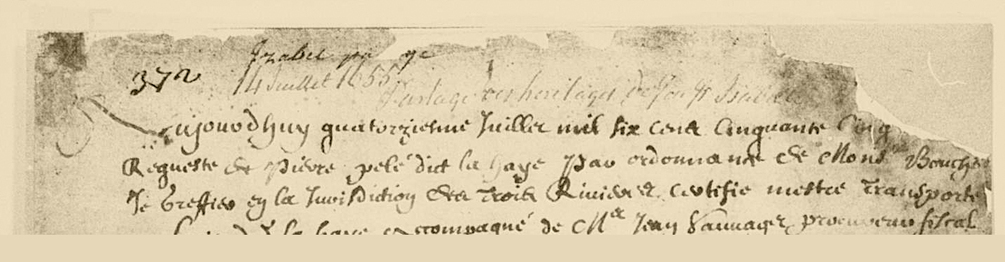 Izabel
372 14 Juillet 1655
Partage des heritages de
Aujourdhuy quatorziesme Juillet mil six cent Cinquante Cinq
Requeste de Pierre pelé dict la haye Par ordonnance de Mons^r Boucher
Je Greffier en la Jurisdiction des Trois Rivieres certifie mettre Transporté
la haye accompagné de M^e Jean Sauvaget procureur fiscal